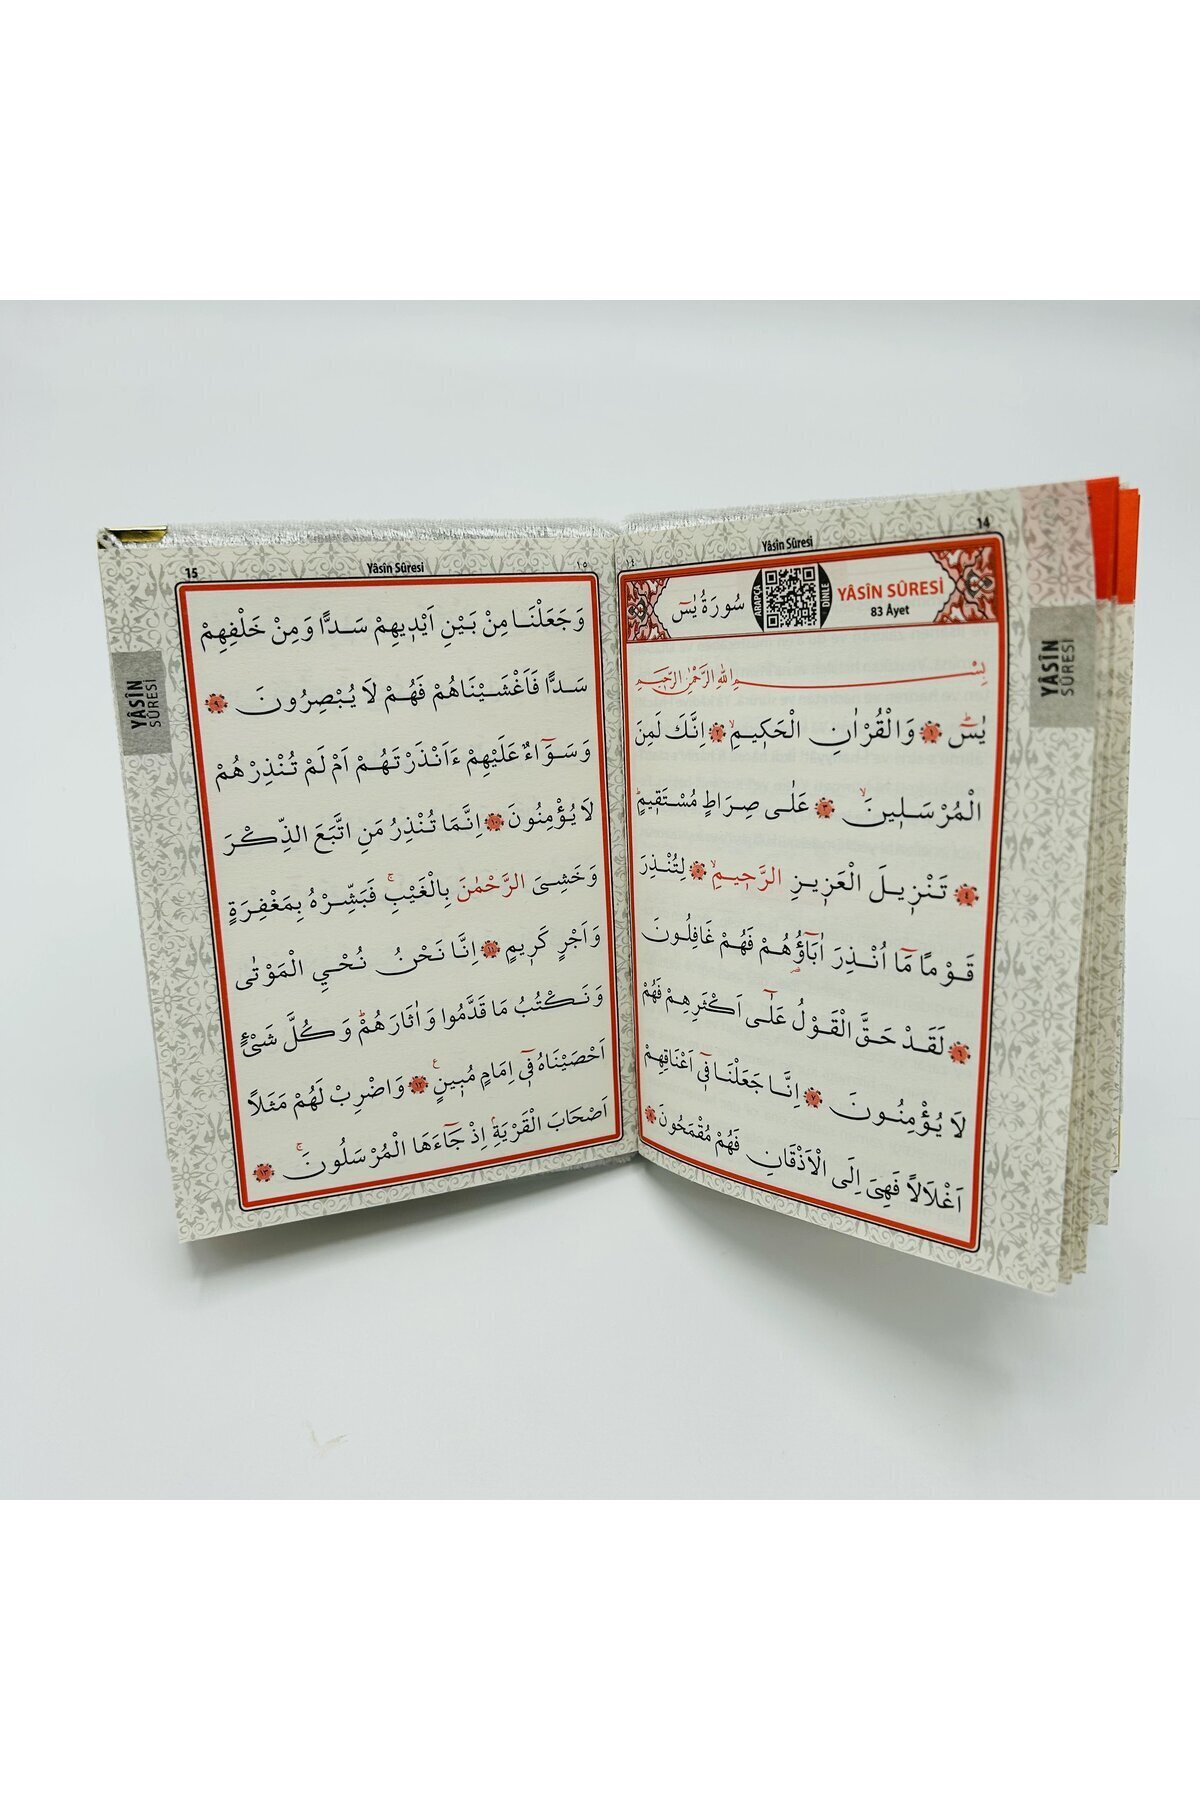 14
Yâsîn Sûresi
١٤
YÂSÎN SÛRESİ
83 Âyet
ARAPÇA
DİNLE
سُورَةُ يٰسٓ
بِسْمِ اللّٰهِ الرَّحْمٰنِ الرَّح۪يمِ
يٰسٓۜ ﴿١﴾ وَالْقُرْاٰنِ الْحَك۪يمِۙ ﴿٢﴾ اِنَّكَ لَمِنَ
الْمُرْسَل۪ينَۙ ﴿٣﴾ عَلٰى صِرَاطٍ مُسْتَق۪يمٍۜ
﴿٤﴾ تَنْز۪يلَ الْعَز۪يزِ الرَّح۪يمِۙ ﴿٥﴾ لِتُنْذِرَ
قَوْمًا مَٓا اُنْذِرَ اٰبَٓاؤُ۬هُمْ فَهُمْ غَافِلُونَ
﴿٦﴾ لَقَدْ حَقَّ الْقَوْلُ عَلٰٓى اَكْثَرِهِمْ فَهُمْ
لَا يُؤْمِنُونَ ﴿٧﴾ اِنَّا جَعَلْنَا ف۪ٓي اَعْنَاقِهِمْ
اَغْلَالًا فَهِيَ اِلَى الْاَذْقَانِ فَهُمْ مُقْمَحُونَ ﴿٨﴾
YÂSÎN
SÛRESİ
15
Yâsîn Sûresi
١٥
وَجَعَلْنَا مِنْ بَيْنِ اَيْد۪يهِمْ سَدًّا وَمِنْ خَلْفِهِمْ
سَدًّا فَاَغْشَيْنَاهُمْ فَهُمْ لَا يُبْصِرُونَ ﴿٩﴾
وَسَوَٓاءٌ عَلَيْهِمْ ءَاَنْذَرْتَهُمْ اَمْ لَمْ تُنْذِرْهُمْ
لَا يُؤْمِنُونَ ﴿١٠﴾ اِنَّمَا تُنْذِرُ مَنِ اتَّبَعَ الذِّكْرَ
وَخَشِيَ الرَّحْمٰنَ بِالْغَيْبِۚ فَبَشِّرْهُ بِمَغْفِرَةٍ
وَاَجْرٍ كَر۪يمٍ ﴿١١﴾ اِنَّا نَحْنُ نُحْيِ الْمَوْتٰى
وَنَكْتُبُ مَا قَدَّمُوا وَاٰثَارَهُمْۜ وَكُلَّ شَيْءٍ
اَحْصَيْنَاهُ ف۪ٓي اِمَامٍ مُب۪ينٍ۟ ﴿١٢﴾ وَاضْرِبْ لَهُمْ مَثَلًا
اَصْحَابَ الْقَرْيَةِۢ اِذْ جَٓاءَهَا الْمُرْسَلُونَۚ ﴿١٣﴾
YÂSÎN
SÛRESİ